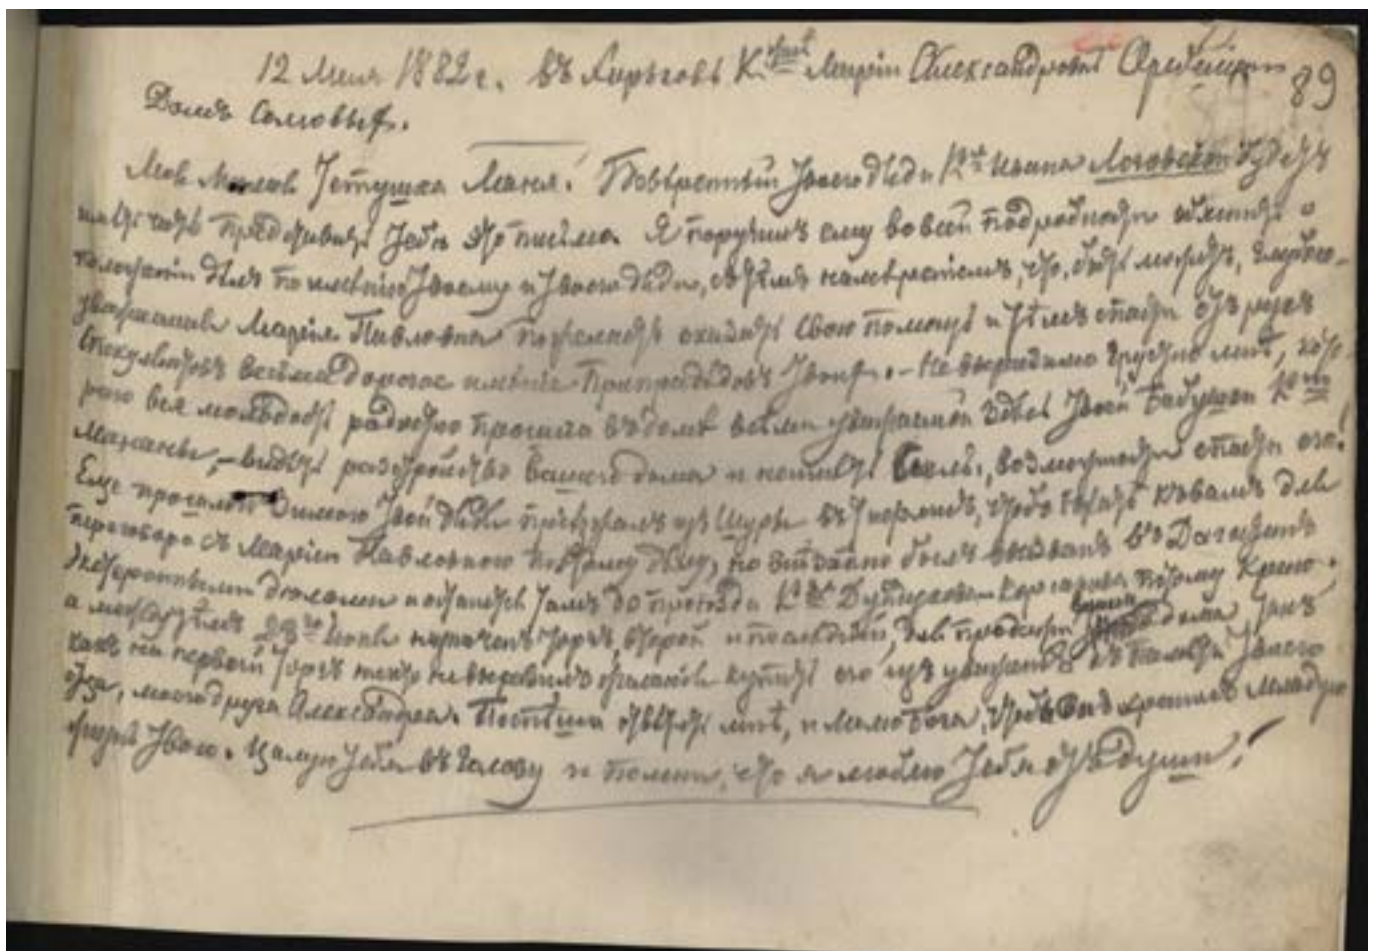 89
12 Мая 1882 г. въ Харьковъ К Маріи Александровнѣ Орбеліани
Домъ Соловьеф.
Моя милая Тетушка Маня! Повѣренный Твоего дѣди К Ивана будетъ
честь представить Тебѣ это письмо. Я поручилъ ему во всей подробности о
положеніи дѣлъ по имѣнію Твоему и Твоего дѣди, съ тѣмъ намѣреніемъ, что, быть можетъ, глубоко-
уважаемая Марія Павловна пожелаетъ оказать свою помощь и тѣмъ спасти отъ рукъ
весьма дорогое имѣніе Твоихъ. – Невыразимо грустно мнѣ, кото-
раго вся молодость радостно прошла въ домѣ всѣми уважаемой здѣсь Твоей бабушки К
– видѣть разстройство вашего дома и не имѣть возможности спасти его!
Еще прошлою Зимою Твой дѣдя пріѣзжалъ изъ Шуры въ чтобъ ѣхать къ вамъ для
переговоро съ Маріею Павловною по этому дѣлу, но внезапно былъ вызванъ въ Дагестанъ
дѣлами и остался тамъ до пріѣзда К Дундукова-Корсакова, потому
а между тѣмъ Іюня назначенъ торгъ, второй и послѣдній, для продажи дома, такъ
какъ на первый торгъ никто не выразилъ желанія купить его изъ уваженія къ памяти Твоего
отца, моего друга Александра. Поспѣши отвѣтить мнѣ, и молю Бога, чтобъ хранилъ молодую
жизнь Твою. Цалую Тебя въ голову и помни, что я люблю Тебя отъ души!